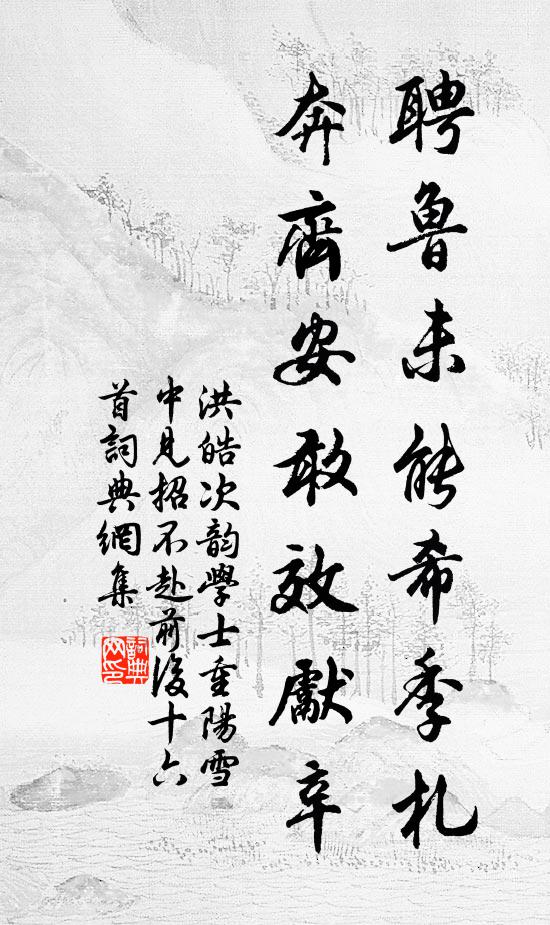 聘魯未能希季札
奔齊安敢效獻辛
洪皓次韵學士重陽雪
中見招不赴前後十六
首詞典網集
詞典網印